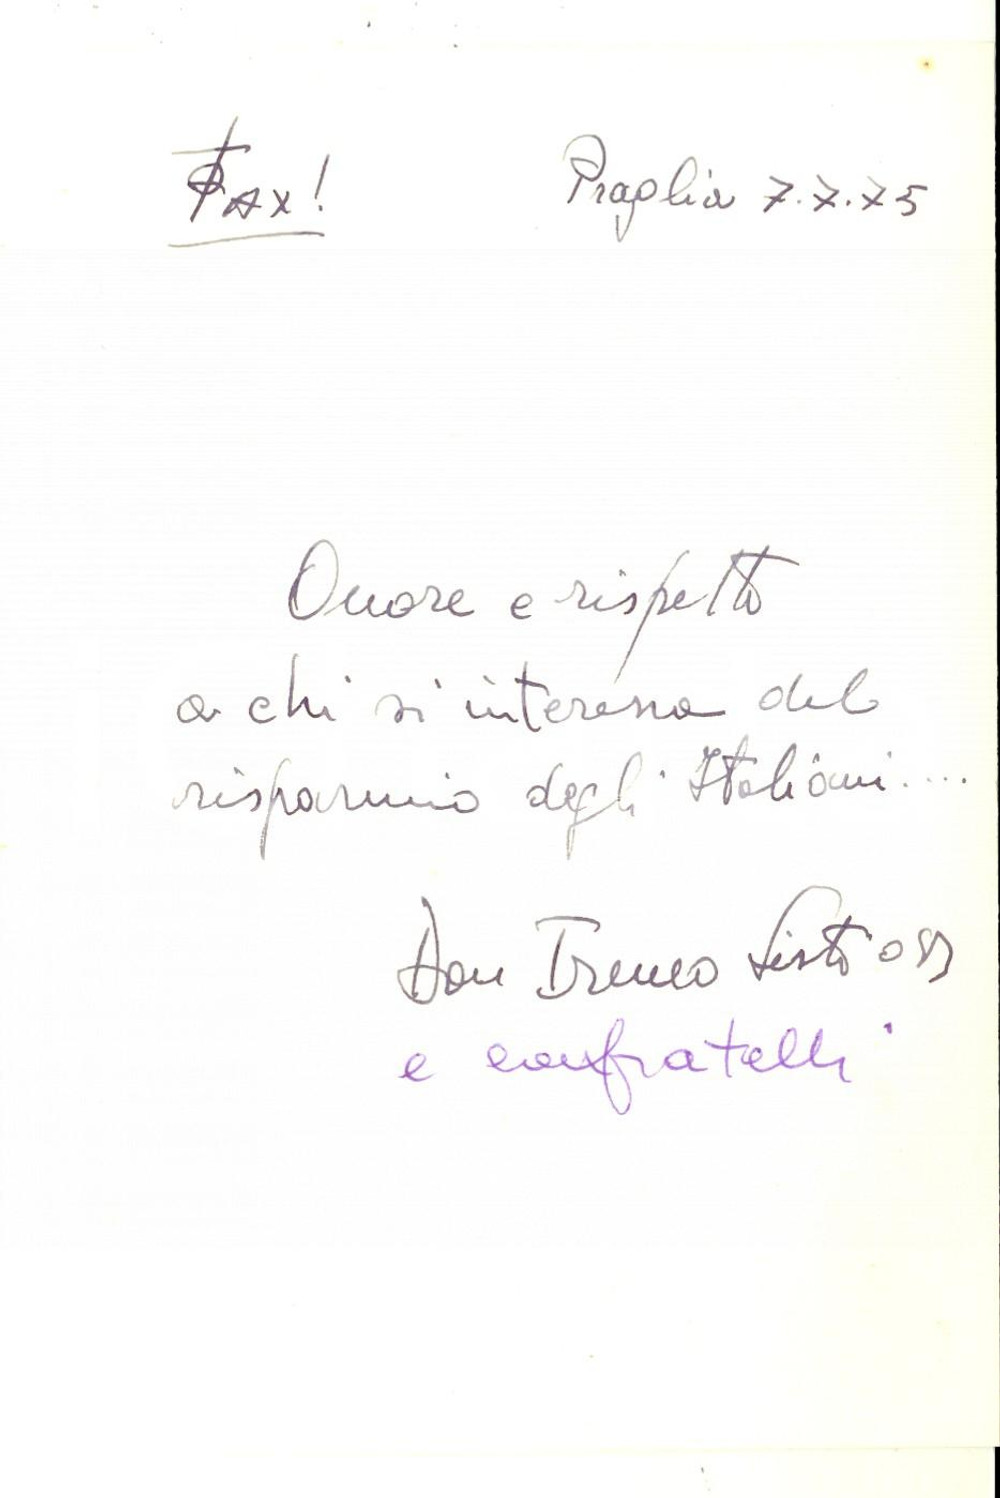 Pax!
Praglia 7.7.75
Onore e rispetto
a chi si interessa del
risparmio degli Italiani....
Don Ireneo Sisto osb
e confratelli